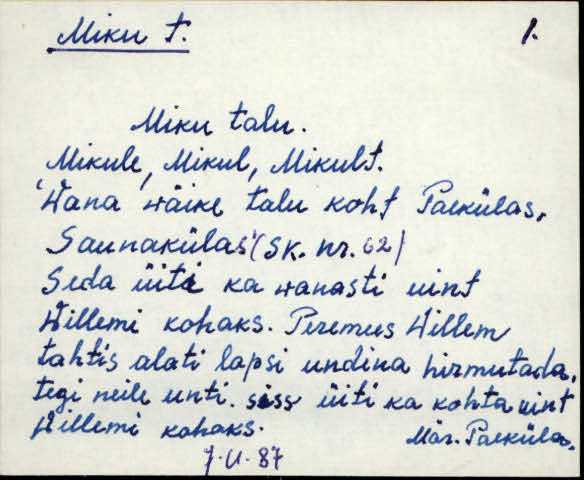 Miku t. 1.
Miku talu.
Mikule, Mikul, Mikult.
Wana wäike talu koht Paekülas,
Saunakülas (Sk. nr. 62)
Seda üiti ka wanasti uint
Willemi kohaks. Peremees Willem
tahtis alati lapsi undina hirmutada,
tegi neile unti. siss üiti ka kohta uint
Willemi kohaks.
Mär. Paeküla.
7.II.87